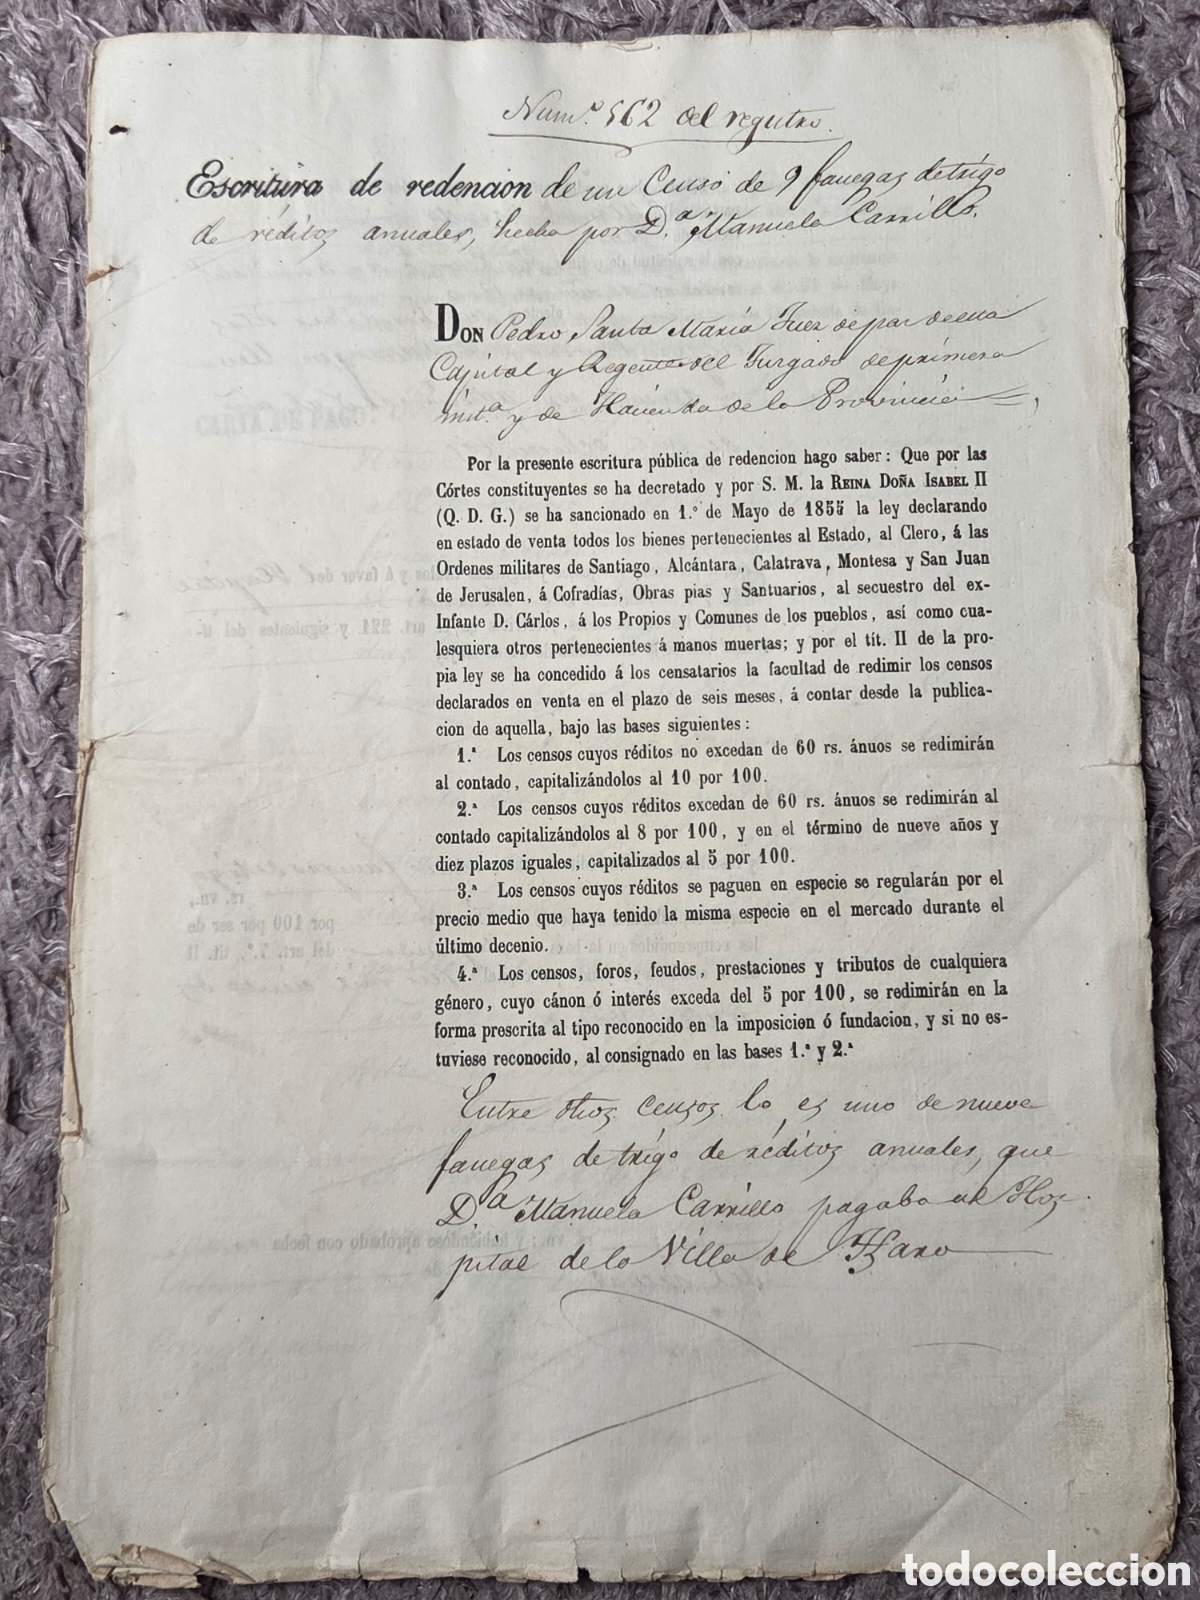 Num.º 562 del registro.
Escritura de redencion de un Censo de 9 fanegas de trigo
de réditos anuales, hecha por D.ª Manuela Carrillo.
DON Pedro Santa María Juez de paz de esta
Capital y Regente del Juzgado de primera
inst.ª y de Hacienda de la Provincia
Por la presente escritura pública de redencion hago saber: Que por las
Córtes constituyentes se ha decretado y por S. M. la REINA DOÑA ISABEL II
(Q. D. G.) se ha sancionado en 1.º de Mayo de 1855 la ley declarando
en estado de venta todos los bienes pertenecientes al Estado, al Clero, á las
Ordenes militares de Santiago, Alcántara, Calatrava, Montesa y San Juan
de Jerusalen, á Cofradías, Obras pias y Santuarios, al secuestro del ex-
Infante D. Cárlos, á los Propios y Comunes de los pueblos, así como cua-
lesquiera otros pertenecientes á manos muertas; y por el tít. II de la pro-
pia ley se ha concedido á los censatarios la facultad de redimir los censos
declarados en venta en el plazo de seis meses, á contar desde la publica-
cion de aquella, bajo las bases siguientes:
1.ª Los censos cuyos réditos no excedan de 60 rs. ánuos se redimirán
al contado, capitalizándolos al 10 por 100.
2.ª Los censos cuyos réditos excedan de 60 rs. ánuos se redimirán al
contado capitalizándolos al 8 por 100, y en el término de nueve años y
diez plazos iguales, capitalizados al 5 por 100.
3.ª Los censos cuyos réditos se paguen en especie se regularán por el
precio medio que haya tenido la misma especie en el mercado durante el
último decenio.
4.ª Los censos, foros, feudos, prestaciones y tributos de cualquiera
género, cuyo cánon ó interés exceda del 5 por 100, se redimirán en la
forma prescrita al tipo reconocido en la imposicion ó fundacion, y si no es-
tuviese reconocido, al consignado en las bases 1.ª y 2.ª
Entre otros censos lo es uno de nueve
fanegas de trigo de réditos anuales, que
D.ª Manuela Carrillo pagaba al Hos
pital de la Villa de Haro
todocoleccion